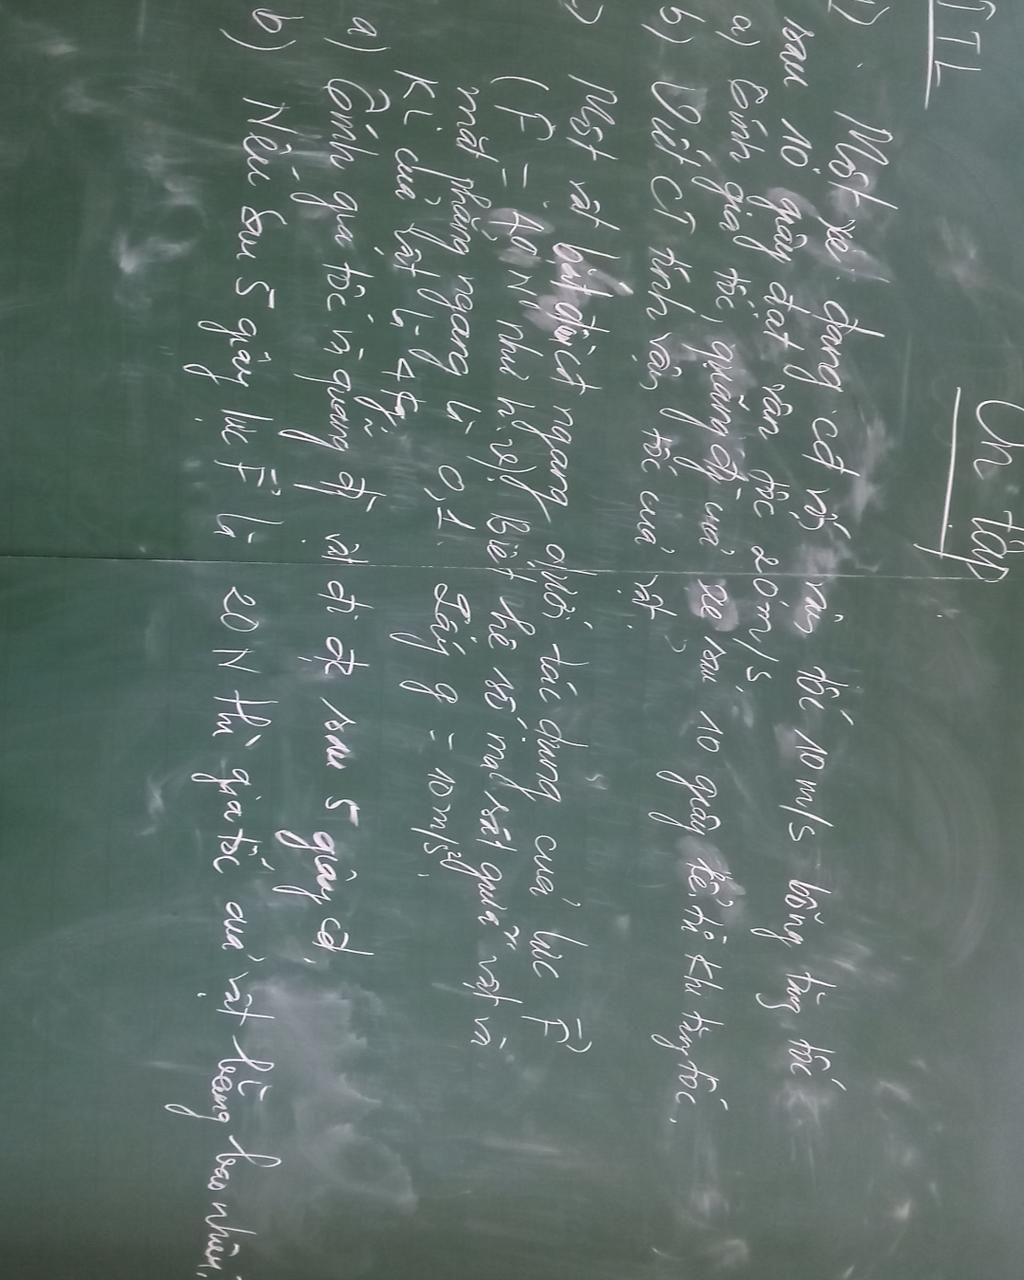 Ôn tập
TL
1) Một xe đang cđ với vận tốc 10m/s bỗng tăng tốc
sau 10 giây đạt vận tốc 20m/s.
a) Tính gia tốc, quãng đi của xe sau 10 giây kể từ khi tăng tốc.
b) Viết CT tính vận tốc của vật.
Một vật bắt đầu cđ ngang dưới tác dụng của lực F
(F = N như h.vẽ) Biết hệ số ma sát giữa vật và
mặt phẳng ngang là 0,1. Lấy g = 10m/s².
KL của vật là 4kg
a) Tính gia tốc và quãng đg vật đi đc sau 5 giây cđ.
b) Nếu sau 5 giây lực F là 20N thì gia tốc của vật lúc bằng bao nhiêu.